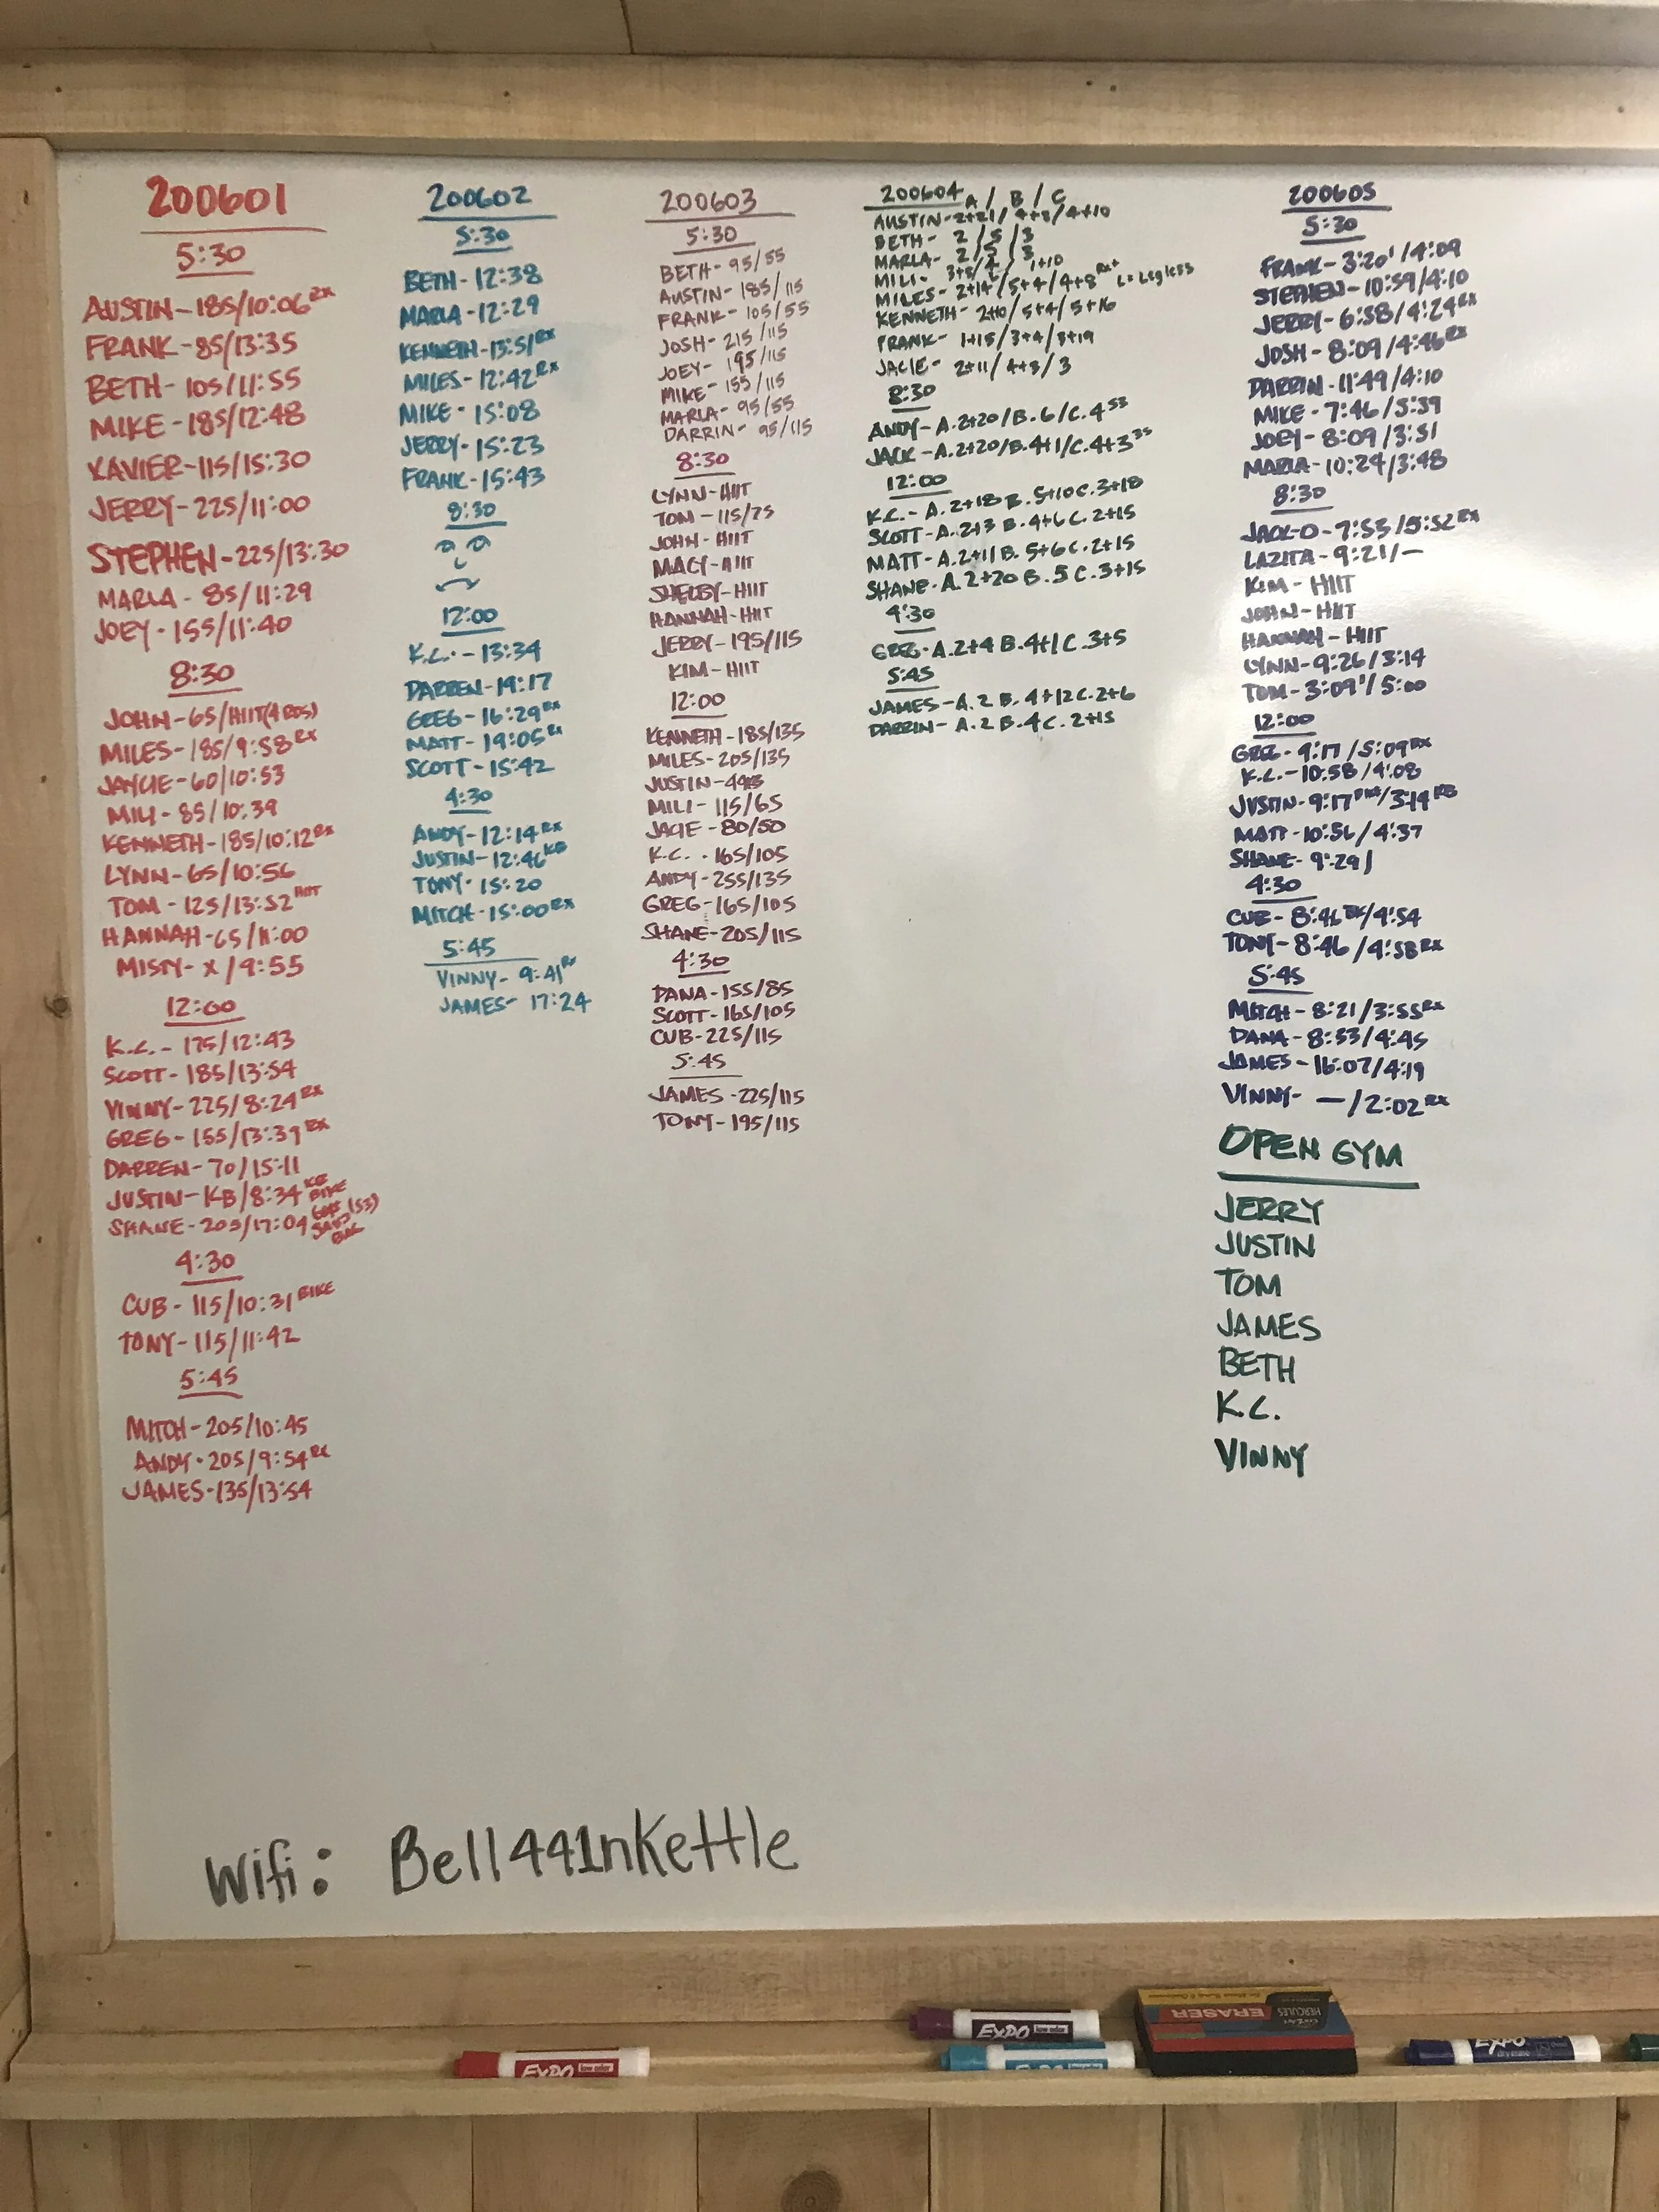 200601
5:30
AUSTIN-185/10:06 RX
FRANK-85/13:35
BETH-105/11:55
MIKE-185/12:48
XAVIER-115/15:30
JERRY-225/11:00
STEPHEN-225/13:30
MARLA-85/11:29
JOEY-155/11:40
8:30
JOHN-65/HIIT(4 RDS)
MILES-185/9:58 RX
JAYCIE-60/10:53
MILI-85/10:39
KENNETH-185/10:12 RX
LYNN-65/10:56
TOM-125/13:52 HIIT
HANNAH-65/11:00
MISTY-X/9:55
12:00
K.C.-175/12:43
SCOTT-185/13:54
VINNY-225/8:24 RX
GREG-155/13:39 RX
DARREN-70/15:11
JUSTIN-KB/8:34 KB BIKE
SHANE-205/17:04 (53) SAND BAG
4:30
CUB-115/10:31 BIKE
TONY-115/11:42
5:45
MITCH-205/10:45
ANDY-205/9:54 RX
JAMES-135/13:54
200602
5:30
BETH-12:38
MARLA-12:29
KENNETH-13:51 RX
MILES-12:42 RX
MIKE-15:08
JERRY-15:23
FRANK-15:43
8:30
12:00
K.C.-13:34
DARREN-19:17
GREG-16:29 RX
MATT-19:05 RX
SCOTT-15:42
4:30
ANDY-12:14 RX
JUSTIN-12:46 KB
TONY-15:20
MITCH-15:00 RX
5:45
VINNY-9:41 RX
JAMES-17:24
200603
5:30
BETH-95/55
AUSTIN-185/115
FRANK-105/55
JOSH-215/115
JOEY-195/115
MIKE-155/115
MARLA-95/55
DARRIN-95/115
8:30
LYNN-HIIT
TOM-115/75
JOHN-HIIT
MACY-HIIT
SHELBY-HIIT
HANNAH-HIIT
JERRY-195/115
KIM-HIIT
12:00
KENNETH-185/135
MILES-205/135
JUSTIN-44KB
MILI-115/65
JACIE-80/50
K.C.-165/105
ANDY-255/135
GREG-165/105
SHANE-205/115
4:30
DANA-155/85
SCOTT-165/105
CUB-225/115
5:45
JAMES-225/115
TONY-195/115
200604 A/B/C
AUSTIN-2+21/4+8/4+10
BETH-2/5/3
MARLA-2/5/3
MILI-3+5/4/1+10
MILES-2+14/5+4/4+8 RX+ L=Legless
KENNETH-2+10/5+4/5+16
FRANK-1+15/3+4/3+19
JACIE-2+11/4+3/3
8:30
ANDY-A.2+20/B.6/C.4 53
JACK-A.2+20/B.4+1/C.4+3 35
12:00
K.C.-A.2+18 B.5+10 C.3+18
SCOTT-A.2+3 B.4+6 C.2+15
MATT-A.2+11 B.5+6 C.2+15
SHANE-A.2+20 B.5 C.3+15
4:30
GREG-A.2+4 B.4+1 C.3+5
5:45
JAMES-A.2 B.4+12 C.2+6
DARRIN-A.2 B.4 C.2+15
200605
5:30
FRANK-3:20'/4:09
STEPHEN-10:59/4:10
JERRY-6:38/4:24 RX
JOSH-8:09/4:46 RX
DARRIN-11:49/4:10
MIKE-7:46/5:39
JOEY-8:09/3:51
MARLA-10:29/3:48
8:30
JACK-D-7:53/5:52 RX
LAZITA-9:21/-
KIM-HIIT
JOHN-HIIT
HANNAH-HIIT
LYNN-9:26/3:14
TOM-3:09'/5:00
12:00
GREG-9:17/5:09 RX
K.C.-10:58/4:08
JUSTIN-9:17/3:14 KB
MATT-10:56/4:37
SHANE-9:29/
4:30
CUB-8:46/4:54
TONY-8:46/4:58 RX
5:45
MITCH-8:21/3:55 RX
DANA-8:33/4:45
JAMES-16:07/4:19
VINNY- -/2:02 RX
OPEN GYM
JERRY
JUSTIN
TOM
JAMES
BETH
K.C.
VINNY
Wifi: Bell441nKettle
EXPO low odor
EXPO low odor
HERCULES
ERASER
EXPO
dry erase